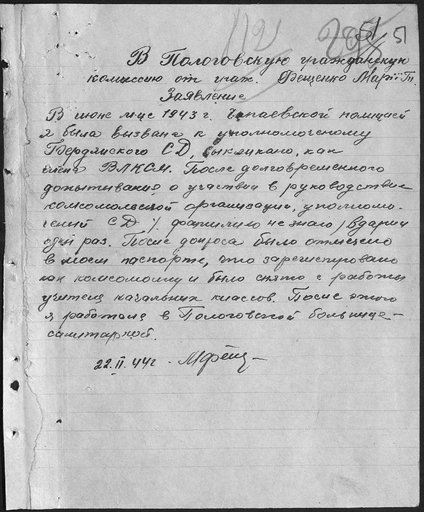 112 285 51 51
В Пологовскую гражданскую
комиссию от граж. Фещенко Маріі Т.
Заявление
В июне м-це 1943 г. Чапаевской полицией
я была вызвана к уполномоченому
Бердянского СД, выкликано, как
член ВЛКСМ. После долговременного
допытивания о участии в руководстве
комсомольской организации, уполномо-
ченый СД / фамилию не знаю / вдарил
один раз. После допроса было отмечено
в моем паспорте, что зарегистровано
как комсомолку и было снято с работы
учителя начальних классов. После этого
я работала в Пологовской больнице-
санитаркой.
22.II.44г. - МФещ-